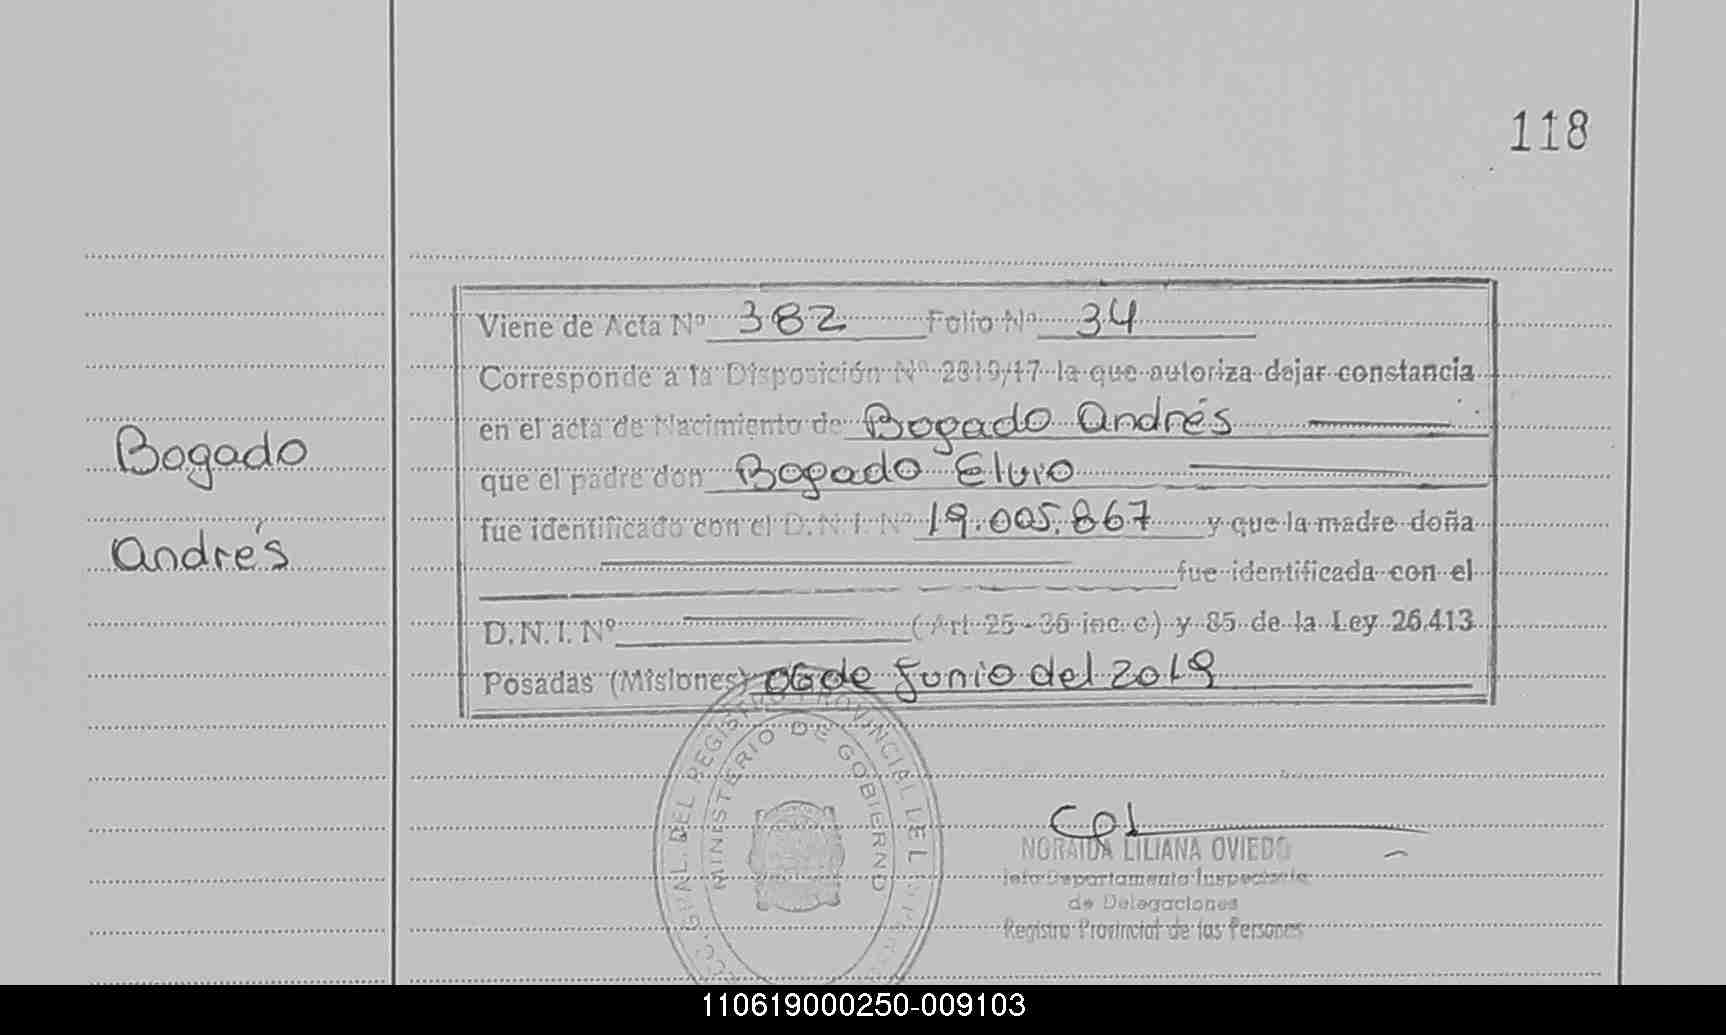 118
Viene de Acta Nº 382 Folio Nº 34
Corresponde a la Disposición Nº 2819/17 la que autoriza dejar constancia
en el acta de Nacimiento de Bogado Andrés
que el padre don Bogado Elvio
fue identificado con el D.N.I. Nº 19.005.867 y que la madre doña
fue identificada con el
D.N.I. Nº (Art 25-36 inc. c) y 85 de la Ley 26.413
Posadas (Misiones) 06 de Junio del 2019
Bogado
Andrés
GRAL. DEL REGISTRO PROVINCIAL DE
MINISTERIO DE GOBIERNO
NORAIDA LILIANA OVIEDO
Jefe Departamento
de Delegaciones
Registro Provincial de las Personas
110619000250-009103